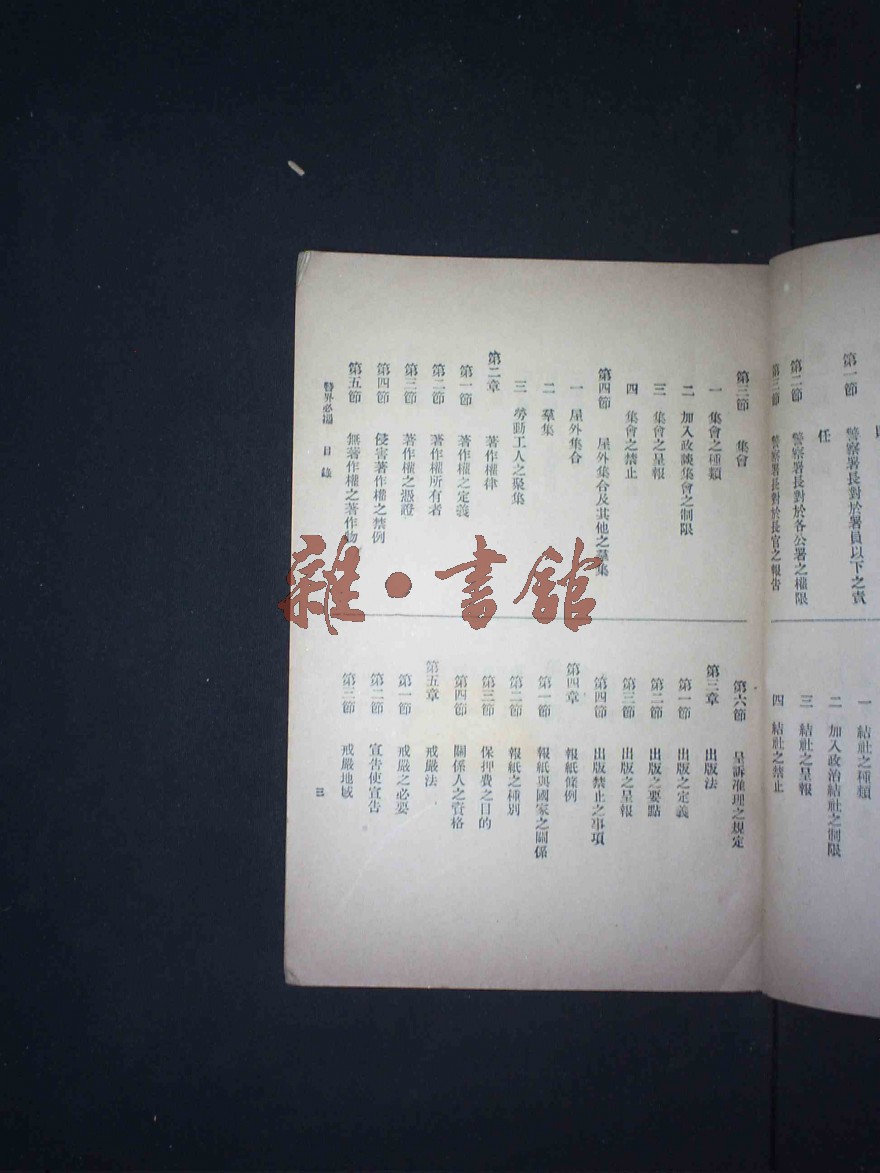 第一節　警察署長對於署員以下之責
任
第二節　警察署長對於各公署之權限
第三節　警察署長對於長官之報告
一　結社之種類
二　加入政治結社之制限
三　結社之呈報
四　結社之禁止
第三節　集會
一　集會之種類
二　加入政談集會之制限
三　集會之呈報
四　集會之禁止
第四節　屋外集合及其他之羣集
一　屋外集合
二　羣集
三　勞動工人之聚集
第二章　著作權律
第一節　著作權之定義
第二節　著作權所有者
第三節　著作權之憑證
第四節　侵害著作權之禁例
第五節　無著作權之著作物
第六節　呈訴准理之規定
第三章　出版法
第一節　出版之定義
第二節　出版之要點
第三節　出版之呈報
第四節　出版禁止之事項
第四章　報紙條例
第一節　報紙與國家之關係
第二節　報紙之種別
第三節　保押費之目的
第四節　關係人之資格
第五章　戒嚴法
第一節　戒嚴之必要
第二節　宣告使宣告
第三節　戒嚴地域
警界必攜　目錄
三
雜·書館